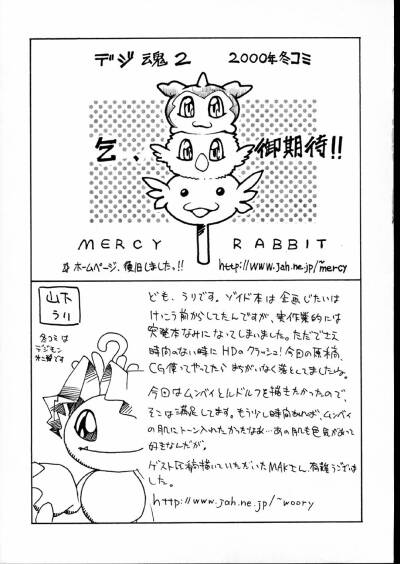 デジ魂2 2000年冬コミ
乞、御期待!!
MERCY RABBIT
ホームページ、復旧しました。!!
http://www.jah.ne.jp/~mercy
山下
うり
冬コミは
デジモン
です
ども、うりです。ゾイド本は企画じたいは
けっこう前からしてたんですが、実作業的には
突発本なみになってしまいました。ただでさえ
時間のない時にHDのクラッシュ!今回の原稿、
CG使ってやってたらまちがいなく落としてましたね。
今回はムンベイとルドルフを描きたかったので、
そこは満足してます。もう少し時間あれば、ムンベイ
の肌にトーン入れたかったなあ…あの肌も色気があって
好きなんだが。
ゲスト原稿描いていただいたMAKさん、有難うございま
した。
http://www.jah.ne.jp/~woory